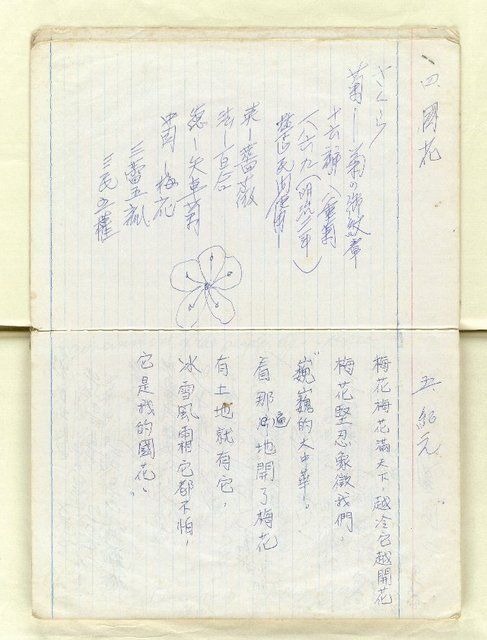 四、國花
さくら
菊－菊の御紋章
十六瓣八重菊
一八六九（明治二年）
禁止民間使用
英－薔薇
法－百合
德－矢車菊
中国－梅花
三蕾五瓣
三民五權
五、紀元
梅花梅花滿天下，越冷它越開花
梅花堅忍象徵我們，
巍巍的大中華。
看那遍地開了梅花
有土地就有它，
冰雪風霜它都不怕，
它是我的國花。